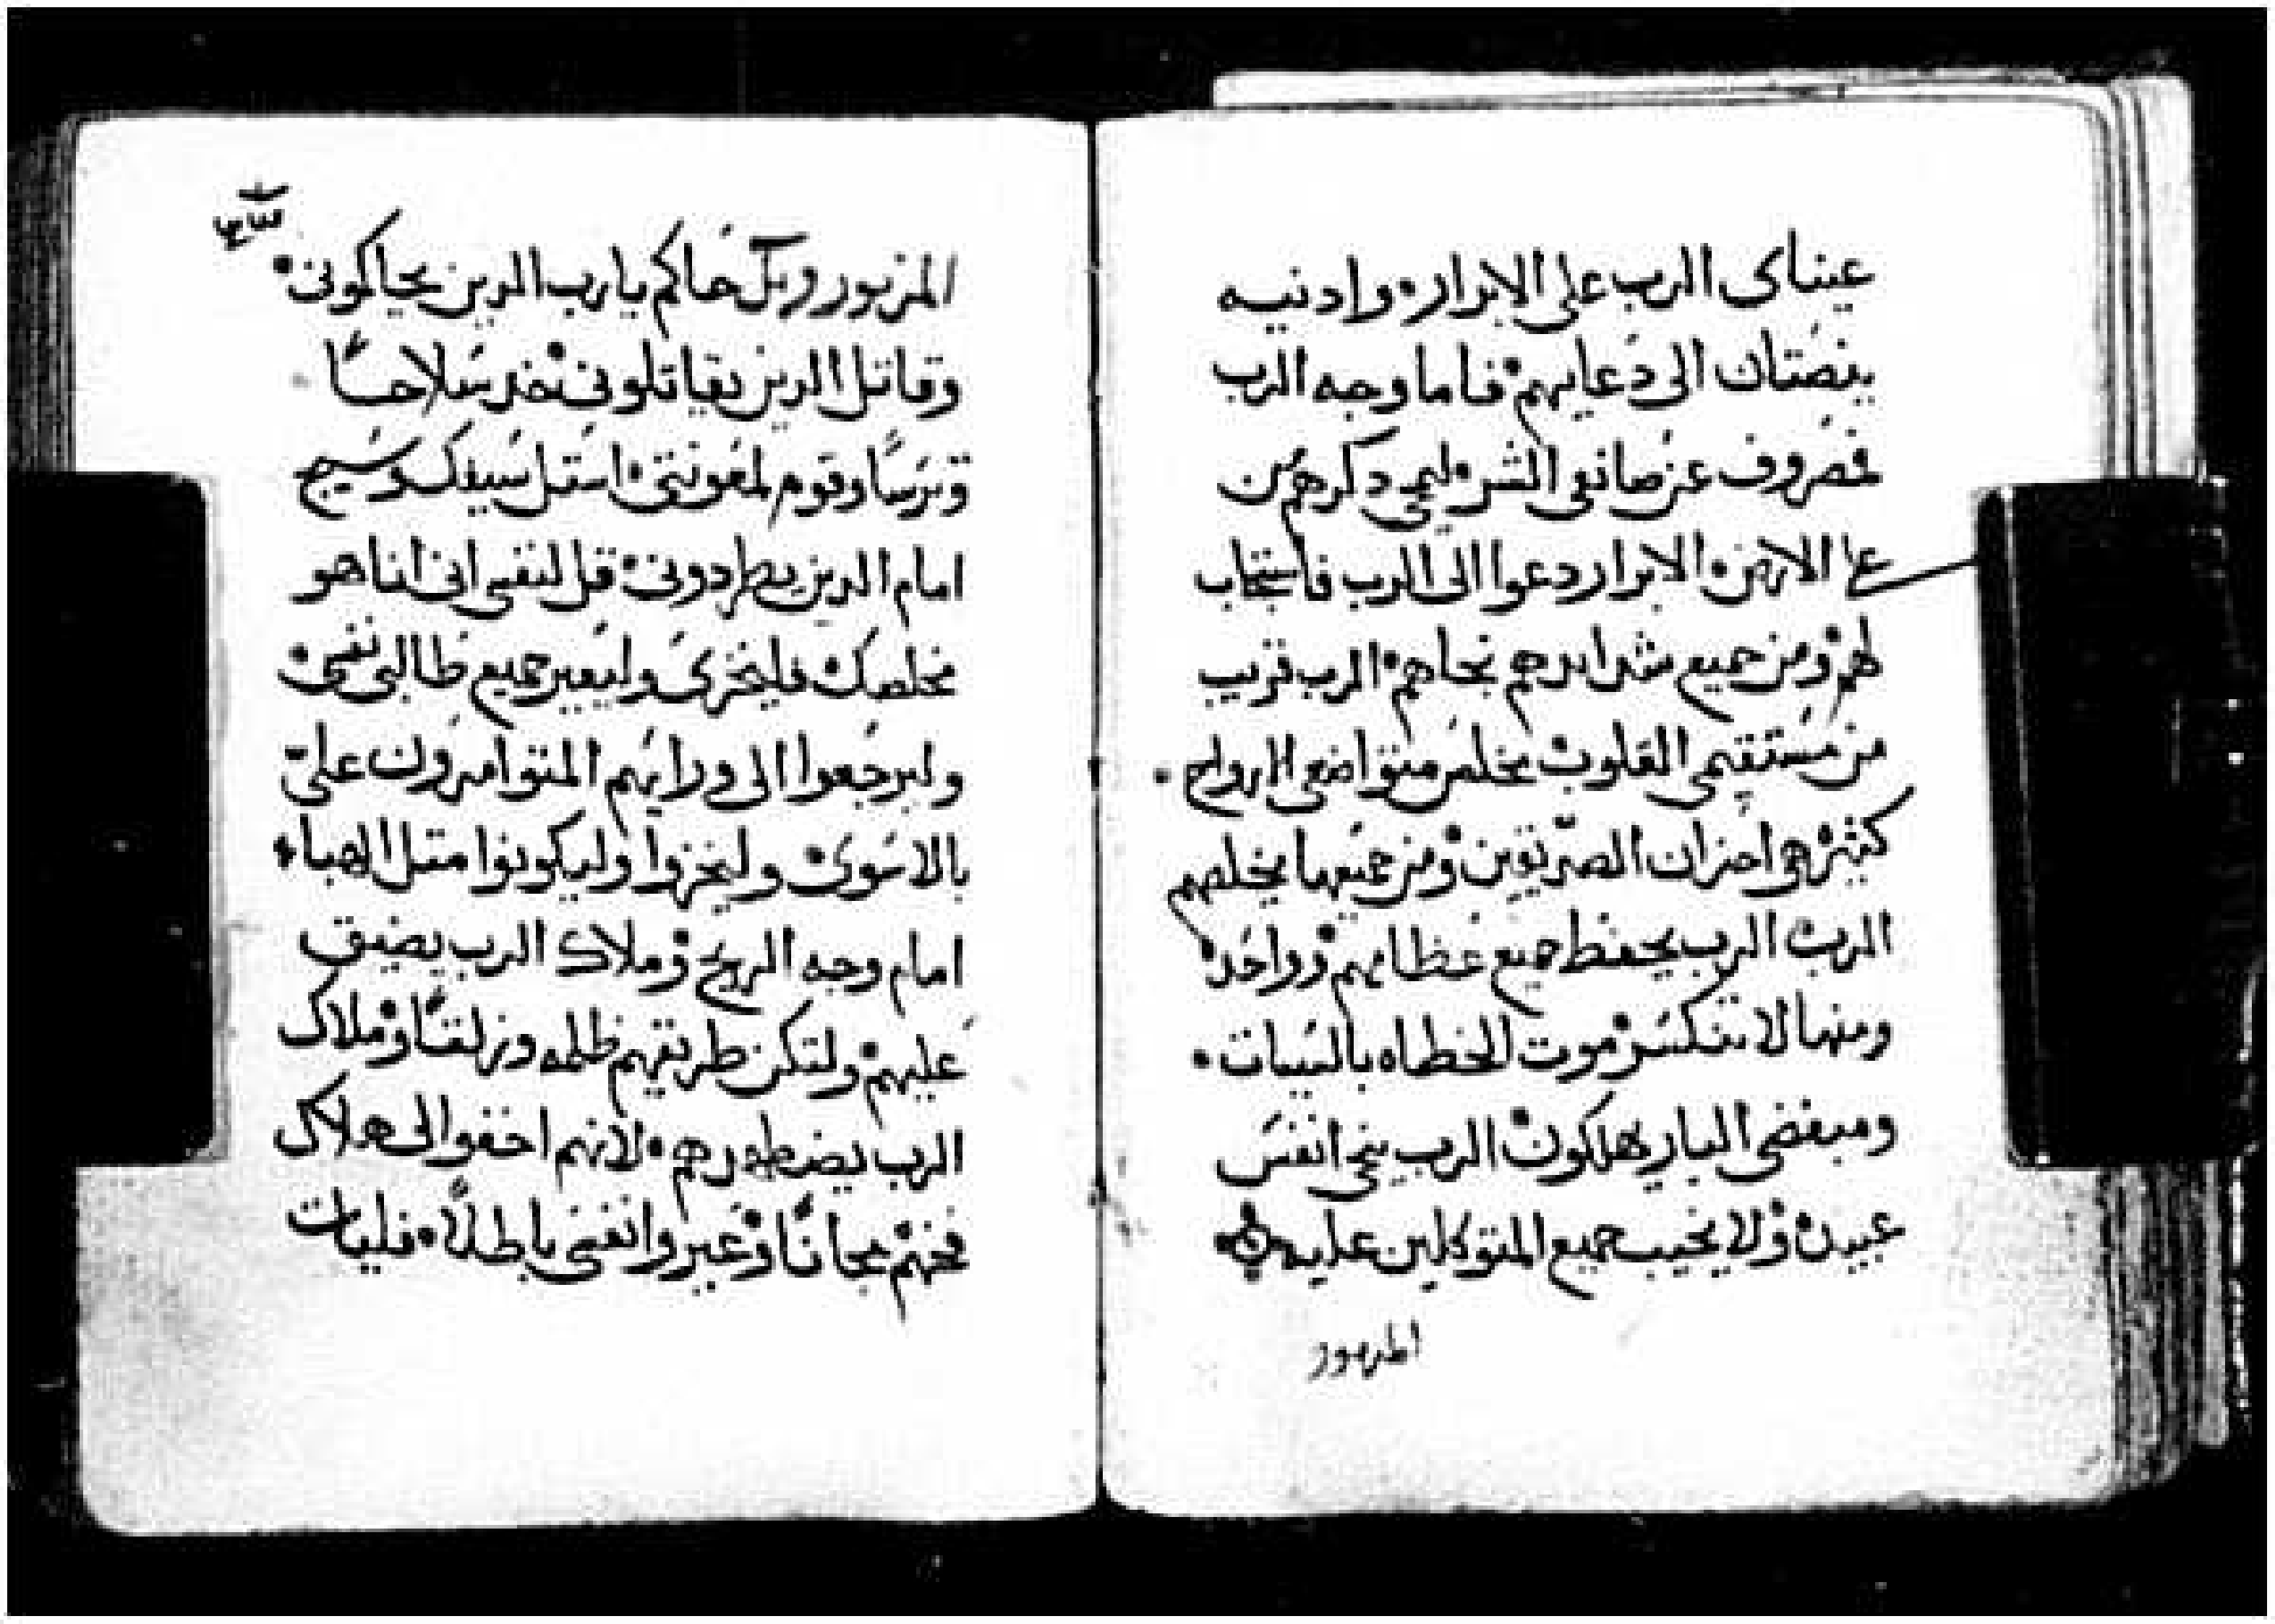 عيناى الرب على الابرار۰ وادنيه
ينصتان الى دعايهم۰ فاما وجه الرب
فمصروف عن صانعى الشر۰ ليمحى دكرهم من
على الارض۰ الابرار دعوا الى الرب فاستجاب
لهم۰ ومن جميع شدايدهم نجاهم۰ الرب قريب
من مستقيمى القلوب۰ يخلص متواضعى الارواح۰
كثيره هى احزان الصديقين۰ ومن جميعها يخلصهم
الرب۰ الرب يحفظ جميع عظامهم۰ وواحده
ومنها لا تنكسر۰ موت الخطاه بالسيات۰
ومبغضى البار يهلكون۰ الرب ينجى انفس
عبيده۰ ولا يخيب جميع المتوكلين عليه۰
المزمور
المزمور حاكم يا رب الدين يحاكمونى۰
وقاتل الدين يقاتلونى۰ خد سلاحًا
وترسًا وقوم لمعونتى۰ استل سيفك وسيج
امام الدين يطردونى۰ قل لنفسى انى انا هو
مخلصك۰ فليخزى وليعير جميع طالبى نفسى۰
وليرجعوا الى ورايهم المتوامرون علىّ
بالاسوى۰ وليخزوا وليكونوا متل الهبا۰
امام وجه الريح۰ وملاك الرب يضيق
عليهم۰ ولتكن طريقهم ظلمه وزلقًا۰ وملاك
الرب يضطهدهم۰ لانهم اخفوا لى هلاك
فخهم مجانًا۰ وعيروا نفسى باطلًا۰ فليات